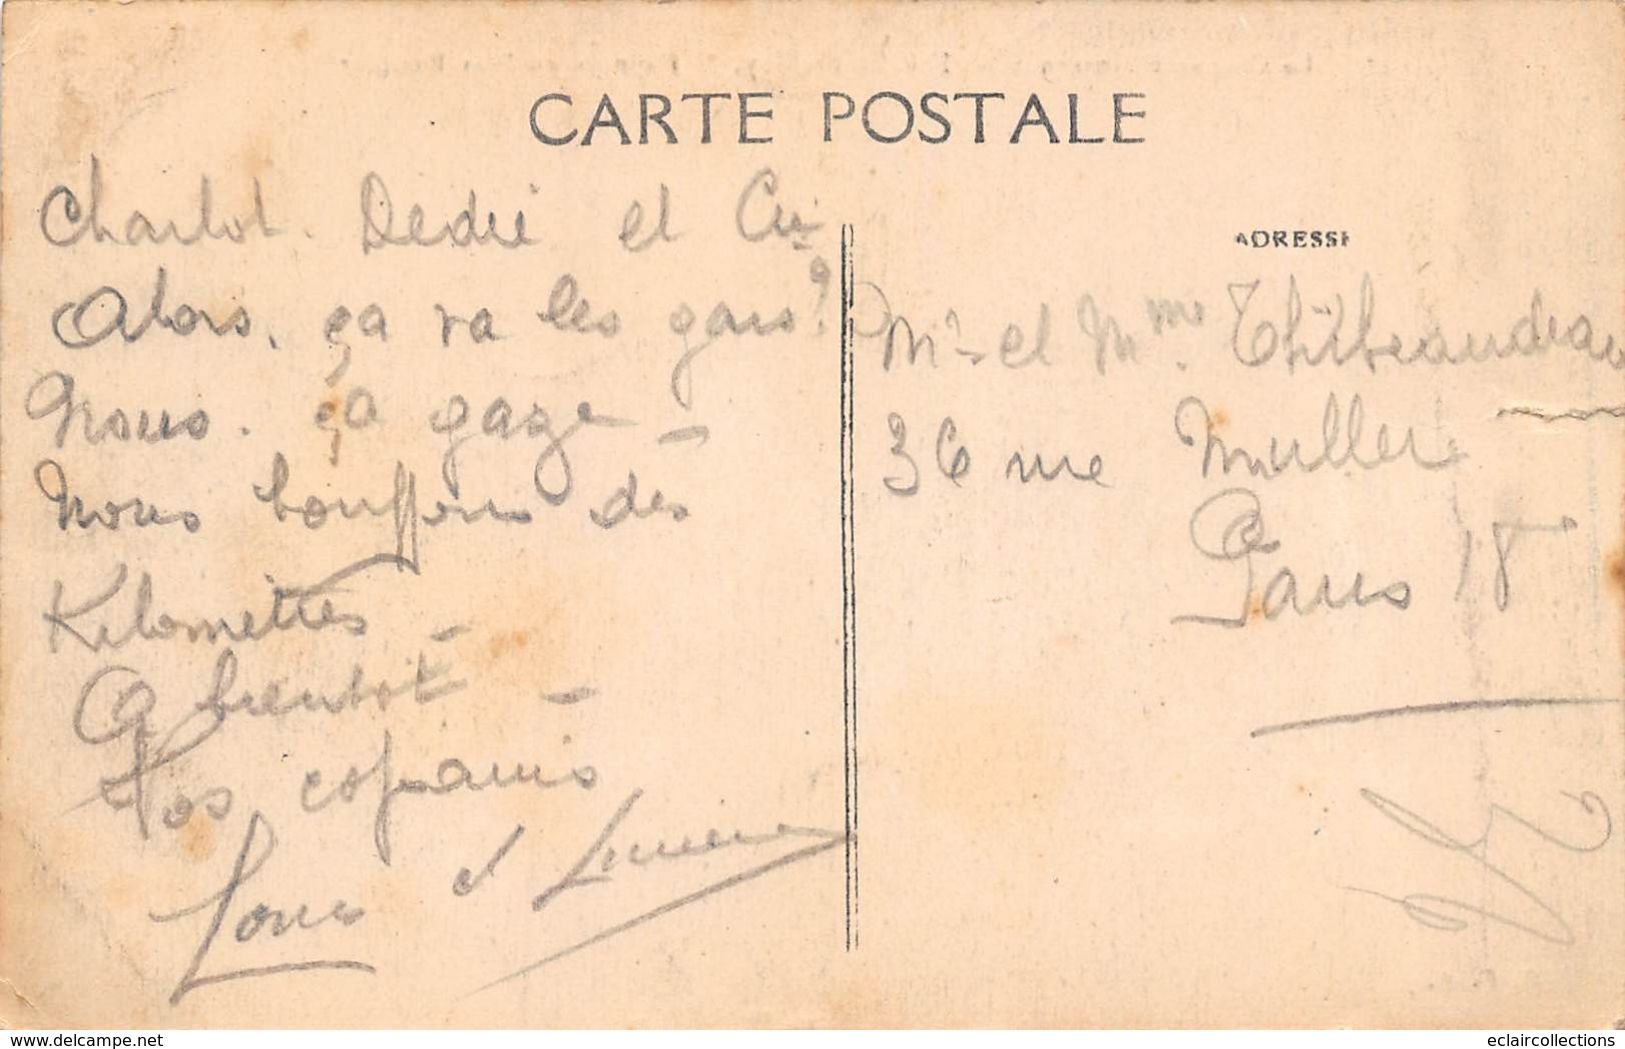 CARTE POSTALE
Charlot. Dédé et Cie
Alors, ça va les gars?
Nous. ça gaze —
Nous bouffons des
Kilomètres —
A bientôt —
Vos copains
Louis et
ADRESSE
Mr et Mme Thibeaudeau
36 rue Muller
Paris 18e
delcampe.net
eclaircollections